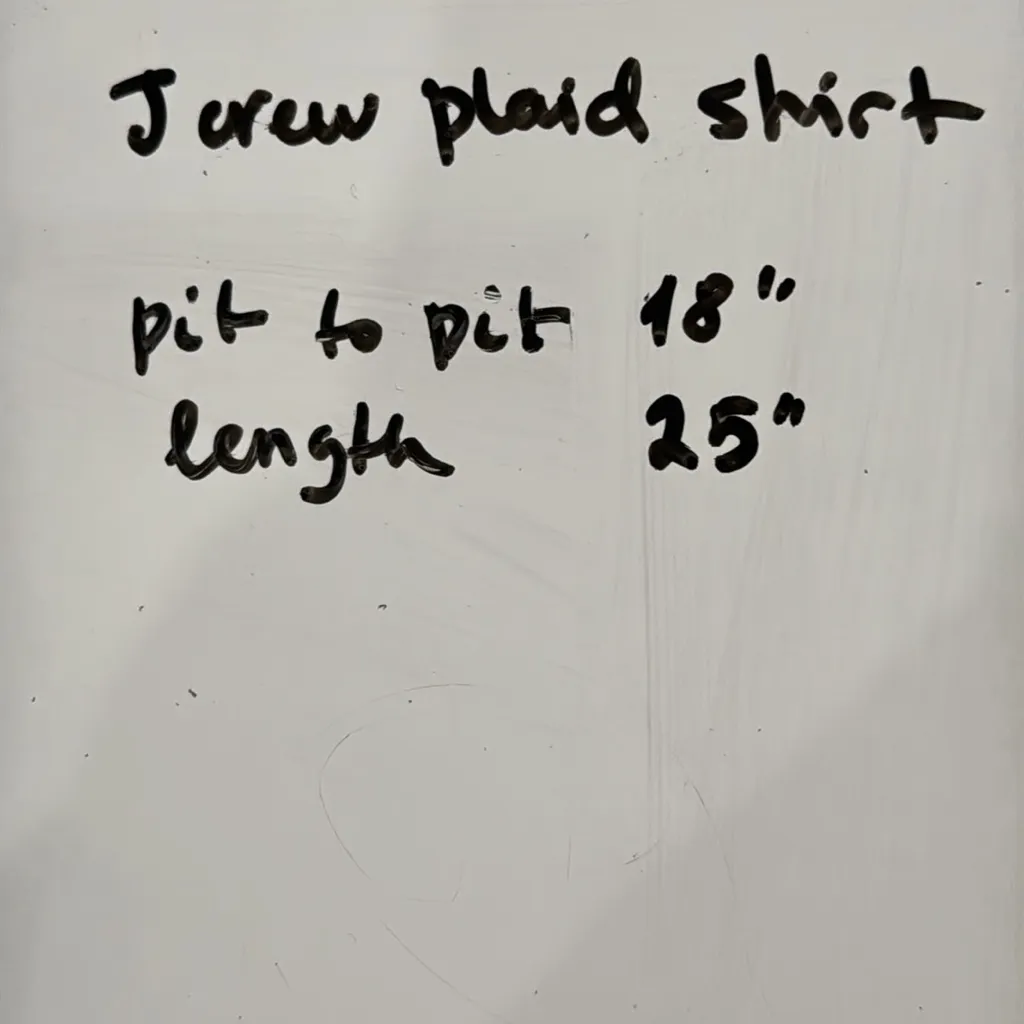 J crew plaid shirt
pit to pit 18"
length 25"